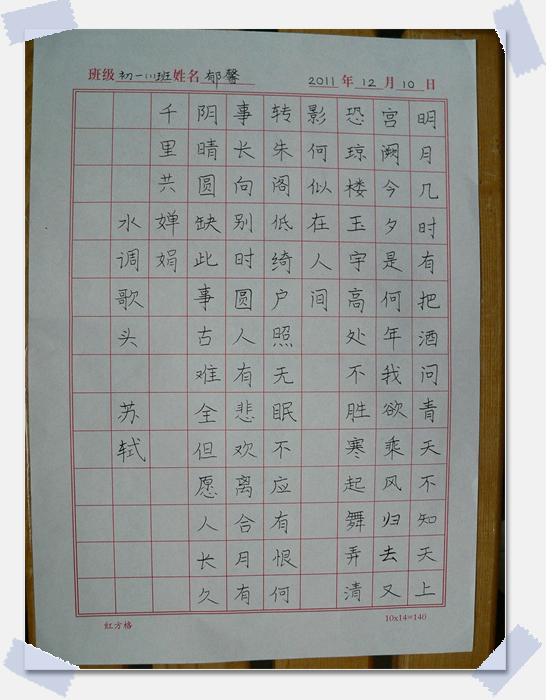 班级初一(1)班姓名郁馨 2011年12月10日
明月几时有把酒问青天不知天上
宫阙今夕是何年我欲乘风归去又
恐琼楼玉宇高处不胜寒起舞弄清
影何似在人间
转朱阁低绮户照无眠不应有恨何
事长向别时圆人有悲欢离合月有
阴晴圆缺此事古难全但愿人长久
千里共婵娟
水调歌头 苏轼
红方格 10x14=140